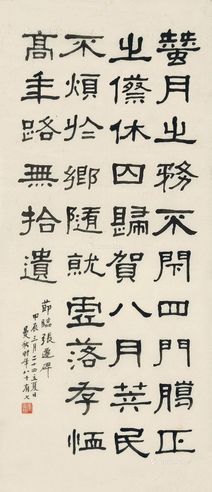 蠶月之務不閉四門臈正
之傺休囚歸賀八月筭民
不煩於鄉隨就虛落存恤
高年路無拾遺
節臨張遷碑
甲辰三月二十四
時年八十有七